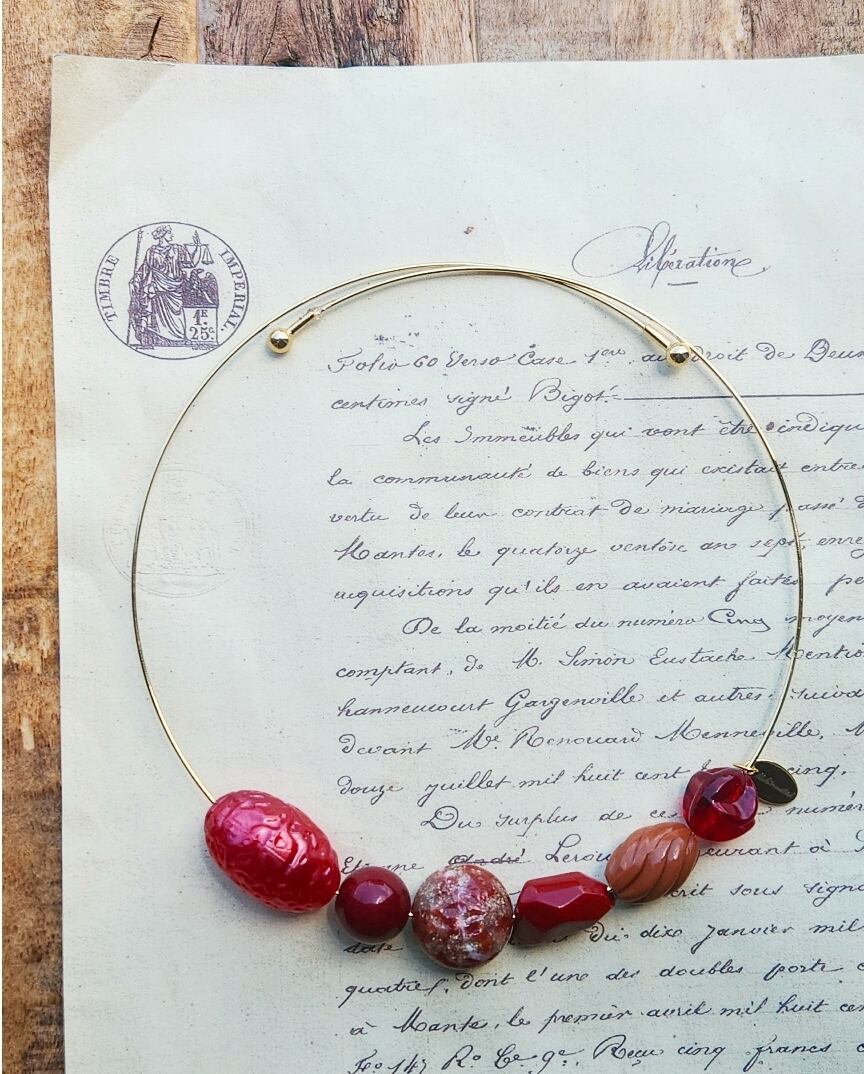 TIMBRE IMPERIAL
1F.
25c.
Libération
Folio 60 Verso Case 1ere au droit de Deux
centimes signé Bigot.
Les Immeubles qui vont être indiqu
la communauté de biens qui existait entre
vertu de leur contrat de mariage passé d
Mantes, le quatorze ventôse an sept, enre
acquisitions qu'ils en avaient faites pe
De la moitié du numéro Cinq moyen
comptant, de M. Simon Eustache
hanneucourt Gargenville et autres. suiva
devant Me Renouard Menneville, M
douze juillet mil huit cent cinq.
Du surplus de ces numér
Etienne Lerou eurant à
crit sous signa
date du dix Janvier mil
quatre, dont l'une des doubles porte
à Mante, le premier avril mil huit cen
Fo 147 Ro Ce 9e, Reçu cinq francs